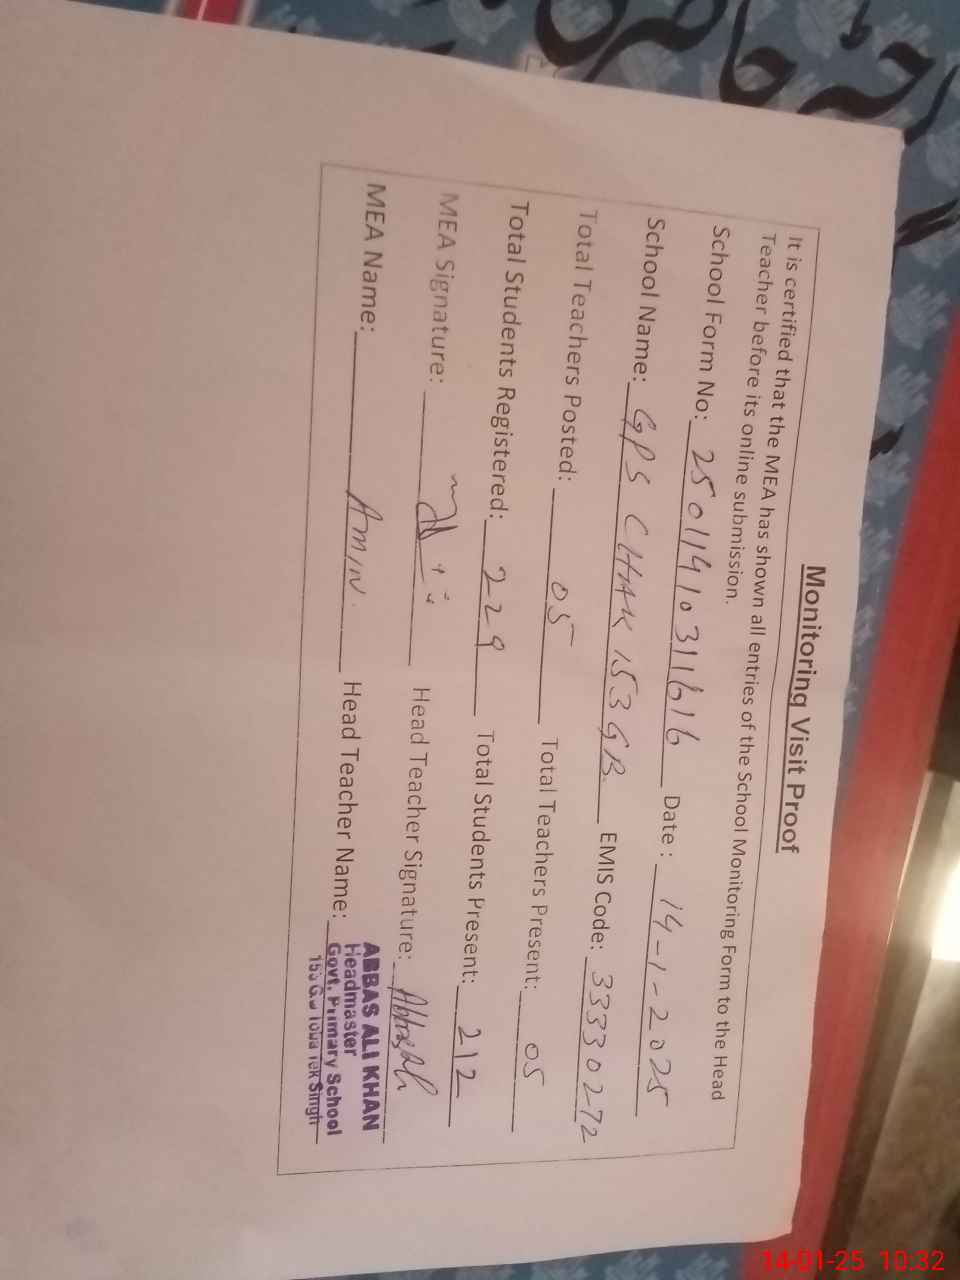 Monitoring Visit Proof
It is certified that the MEA has shown all entries of the School Monitoring Form to the Head
Teacher before its online submission.
School Form No: 25011410311616 Date : 14-1-2025
School Name: GPS CHAK 153 GB EMIS Code: 33330272
Total Teachers Posted: 05 Total Teachers Present: 05
Total Students Registered: 229 Total Students Present: 212
MEA Signature: Head Teacher Signature:
MEA Name: AMIN. Head Teacher Name:
ABBAS ALI KHAN
Headmaster
Govt. Primary School
153 G.B Toba Tek Singh
14-01-25 10:32